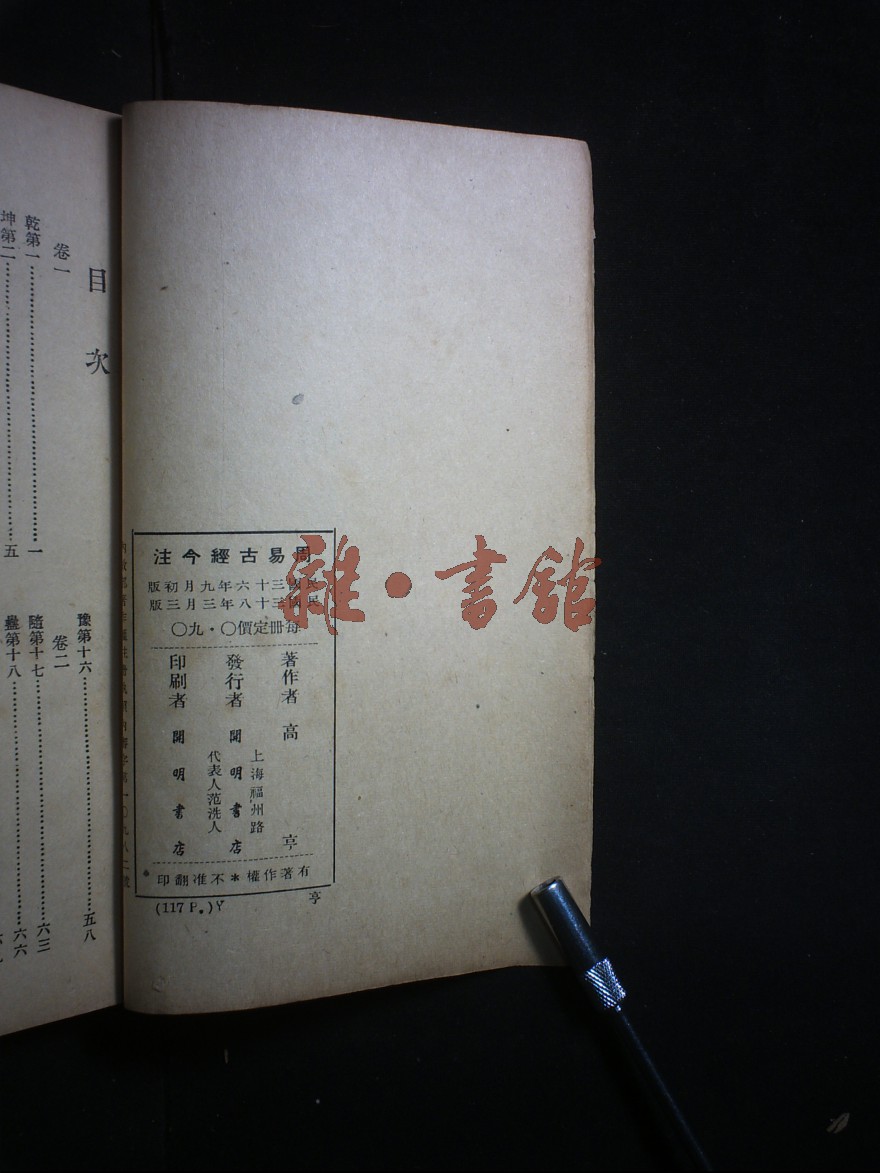 周易古經今注
民國三十六年九月初版
民國三十八年三月三版
每冊定價〇・九〇
著作者 高 亨
上海福州路
發行者 開明書店
代表人范洗人
印刷者 開明書店
有著作權*不准翻印
(117 P.)Y
亨
雜・書館
目次
卷一
乾第一 一
坤第二 五
豫第十六 五八
卷二
隨第十七 六三
蠱第十八 六六